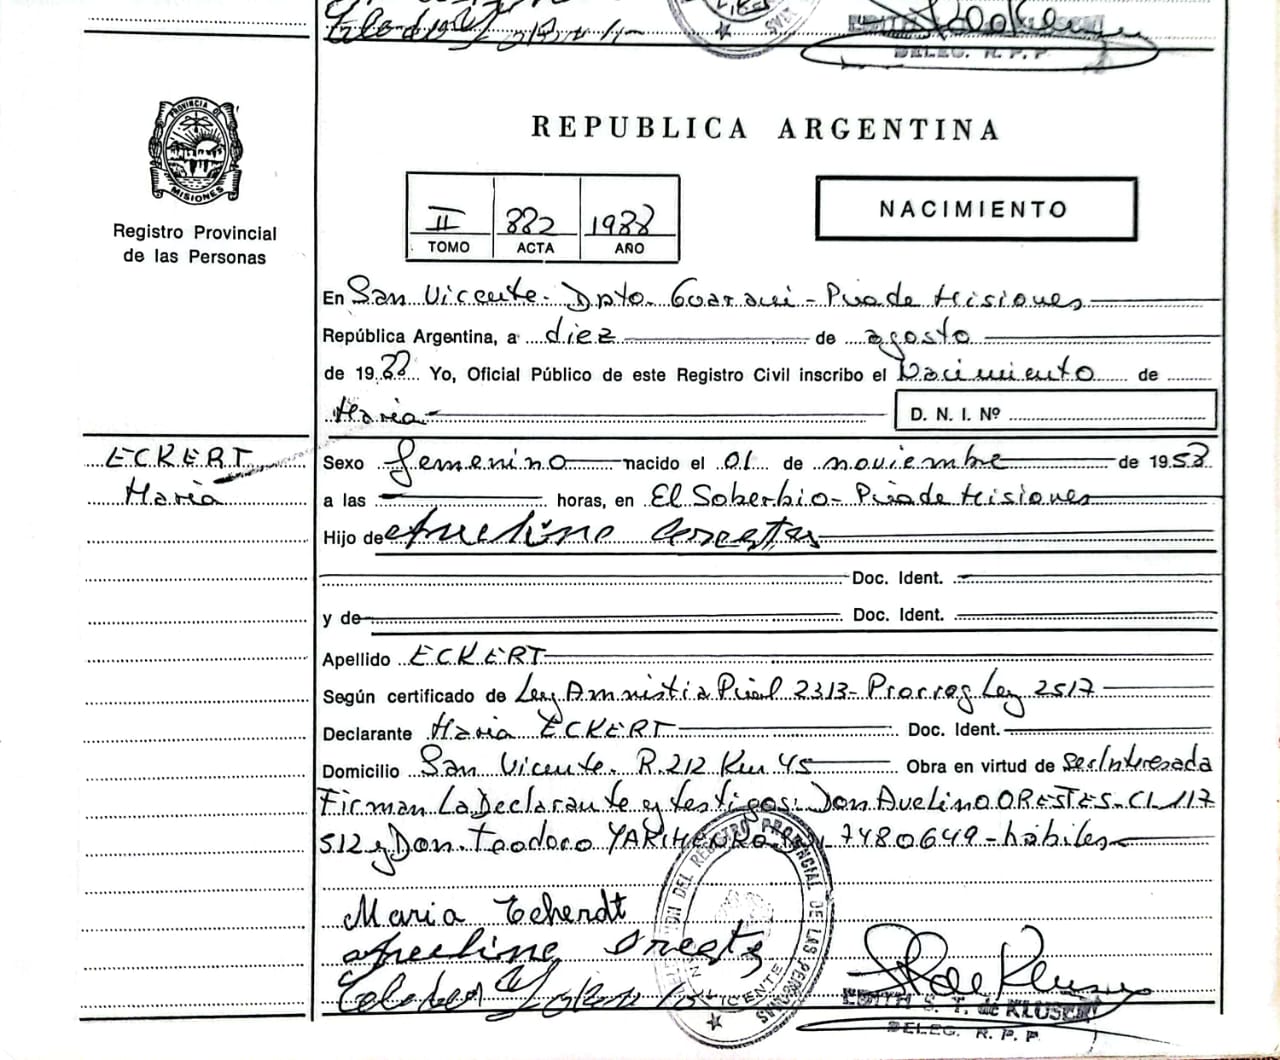 DELEG. R. P. P
PROVINCIA DE
MISIONES
Registro Provincial
de las Personas
REPUBLICA ARGENTINA
II 882 1988
TOMO ACTA AÑO
NACIMIENTO
En San Vicente - Dpto. Guaraní - Pcia de Misiones
República Argentina, a diez de agosto
de 1988 Yo, Oficial Público de este Registro Civil inscribo el Nacimiento de
María - D. N. I. Nº
ECKERT
María
Sexo femenino nacido el 01 de noviembre de 1958
a las horas, en El Soberbio - Pcia de Misiones
Hijo de Avelino Orestes
Doc. Ident.
y de Doc. Ident.
Apellido ECKERT
Según certificado de Ley Amnistia Pcial 2313 - Prorrog Ley 2517
Declarante María ECKERT Doc. Ident.
Domicilio San Vicente. R. 212 Km 45 Obra en virtud de ser Interesada
Firman La Declarante y testigos: Don Avelino ORESTES - CI. 117
512 y Don Teodoro 7480649 - hábiles
Maria Echerdt
Avelino Oreste
EDITH S. T. de KLUSEN
DELEG. R. P. P.